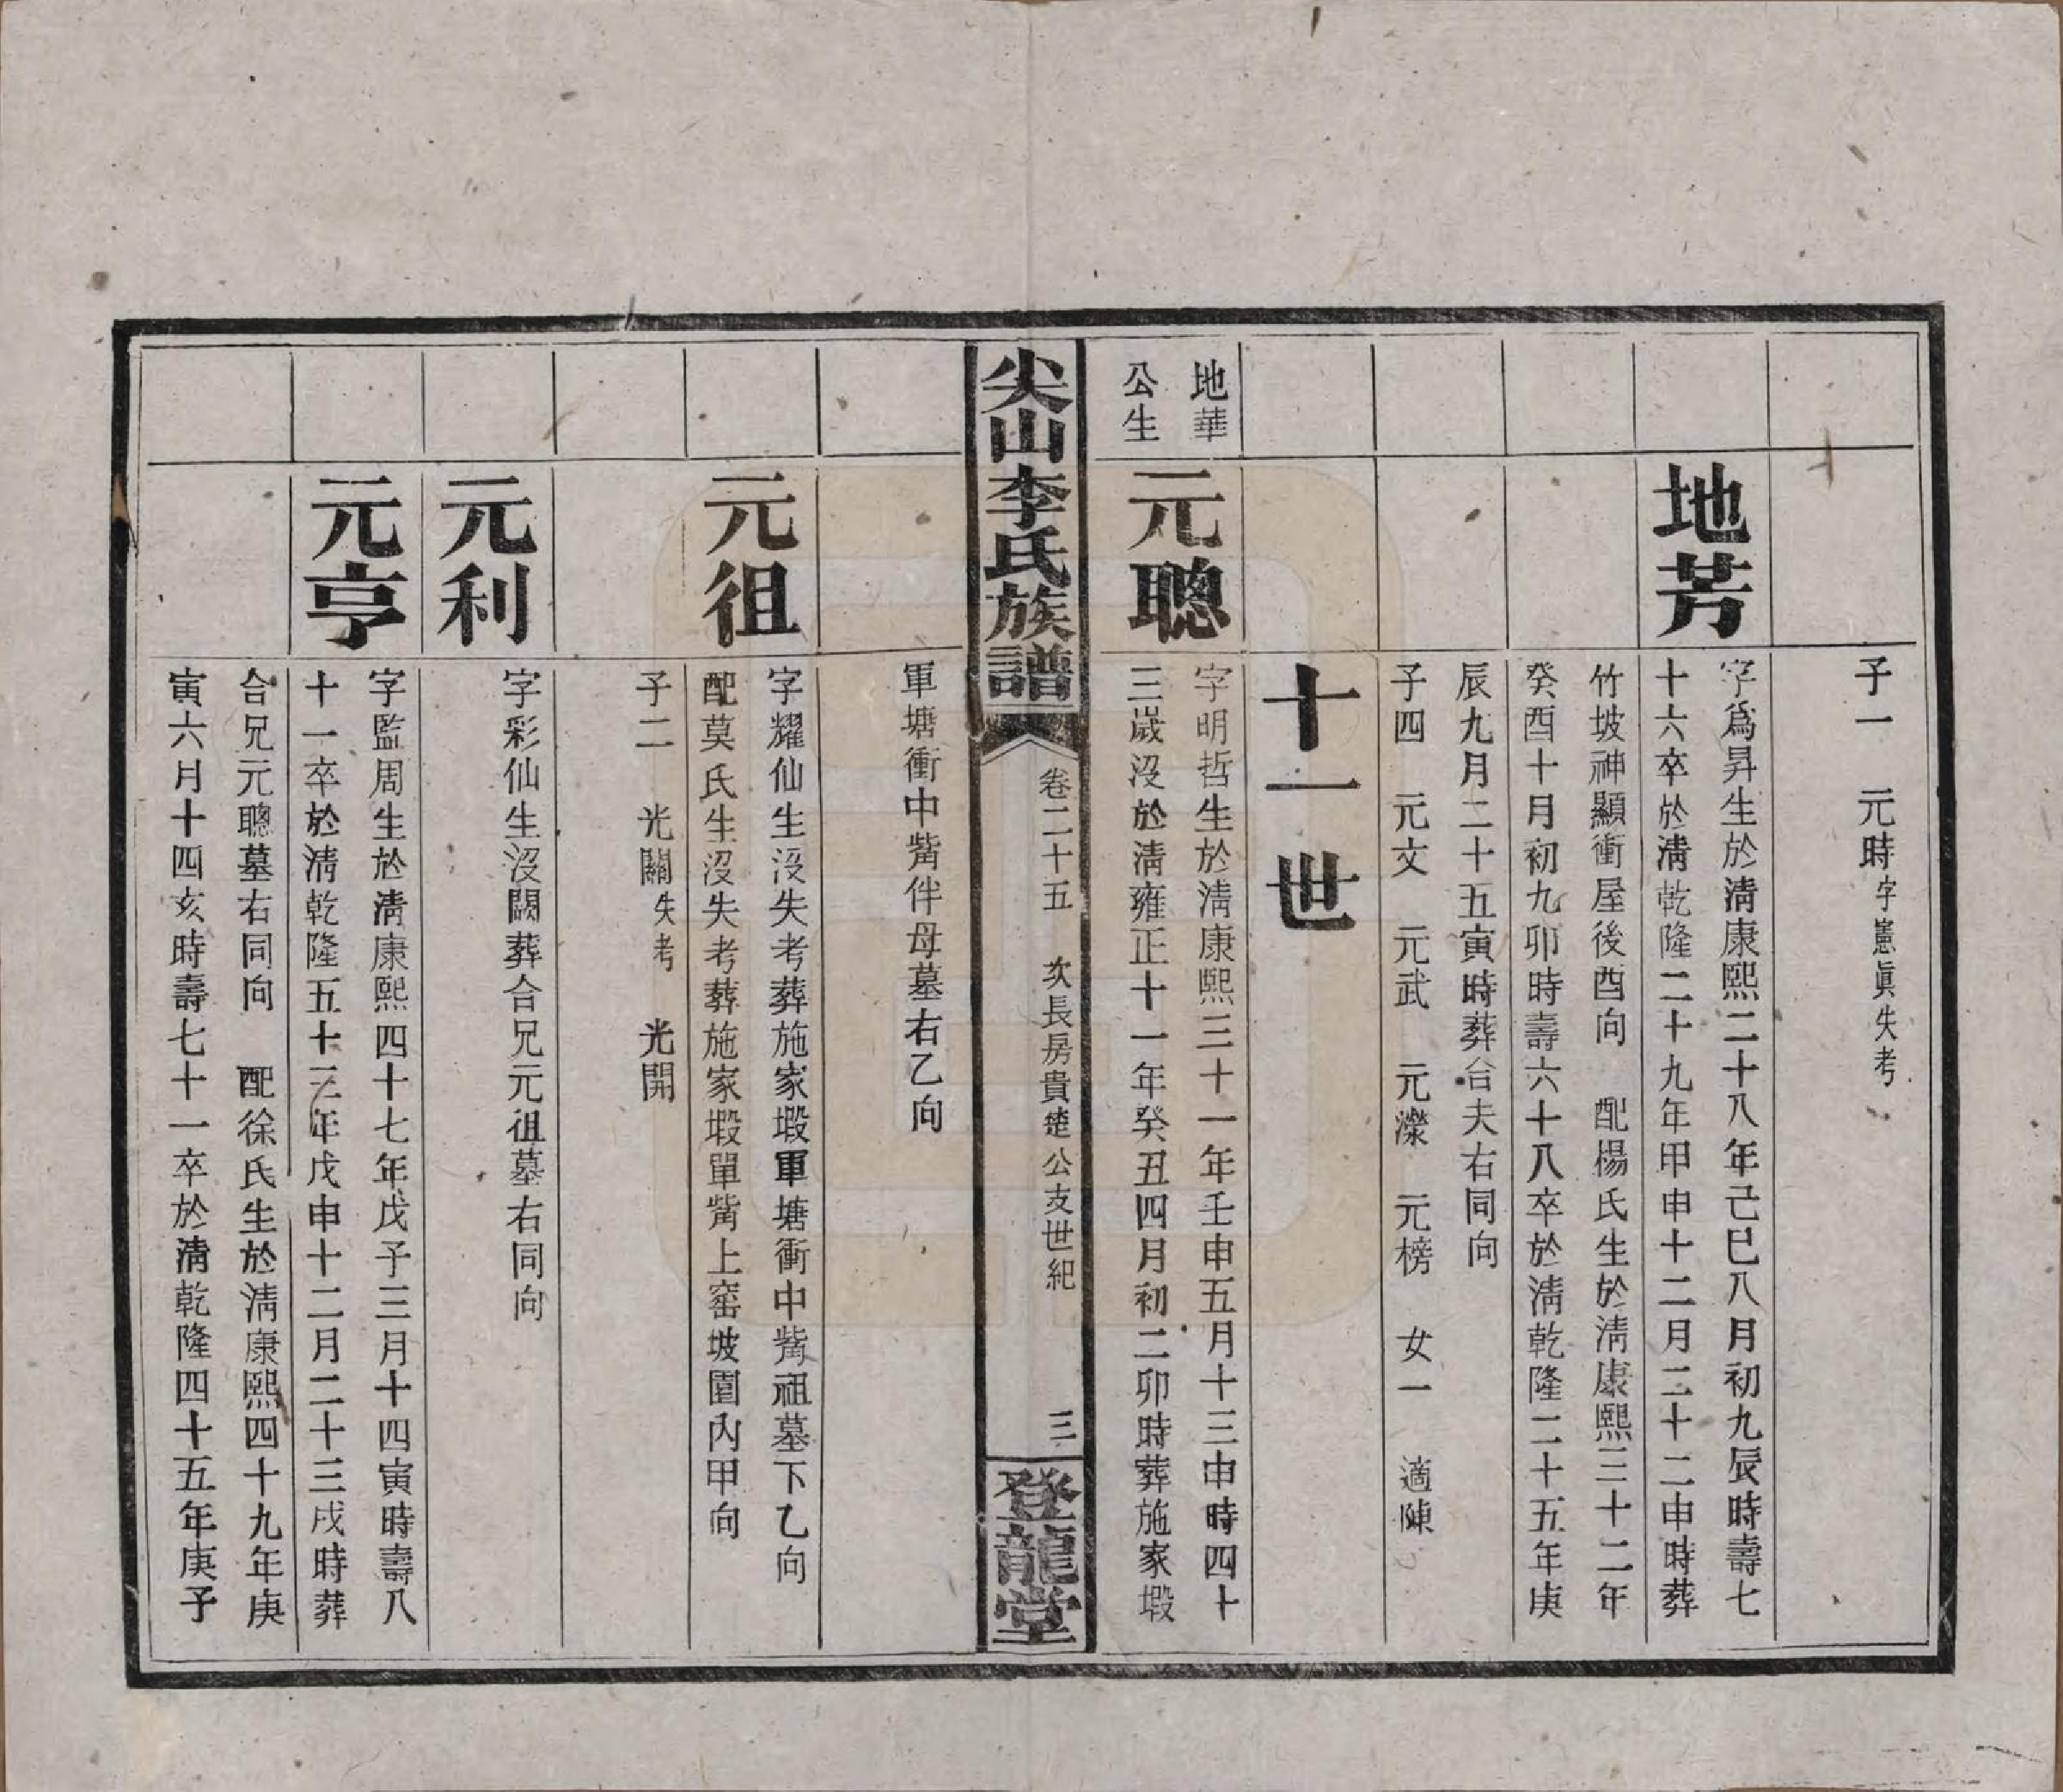 子一　元時字憲眞失考
地芳
字爲昇生於淸康熙二十八年己巳八月初九辰時壽七
十六卒於淸乾隆二十九年甲申十二月三十二申時葬
竹坡神顯衝屋後酉向　配楊氏生於淸康熙三十二年
癸酉十月初九卯時壽六十八卒於淸乾隆二十五年庚
辰九月二十五寅時葬合夫右同向
子四　元文　元武　元濴　元榜　女一　適陳
十一世
地華
公生
元聰
字明哲生於淸康熙三十一年壬申五月十三申時四十
三歲沒於淸雍正十一年癸丑四月初二卯時葬施家塅
尖山李氏族譜
卷二十五　次長房貴楚公支世紀
三
登龍堂
軍塘衝中觜伴母墓右乙向
元徂
字耀仙生沒失考葬施家塅軍塘衝中觜祖墓下乙向
配莫氏生沒失考葬施家塅單觜上窑坡園內甲向
子二　光闢失考　光開
元利
字彩仙生沒闕葬合兄元徂墓右同向
元亨
字監周生於淸康熙四十七年戊子三月十四寅時壽八
十一卒於淸乾隆五十三年戊申十二月二十三戌時葬
合兄元聰墓右同向　配徐氏生於淸康熙四十九年庚
寅六月十四亥時壽七十一卒於淸乾隆四十五年庚子